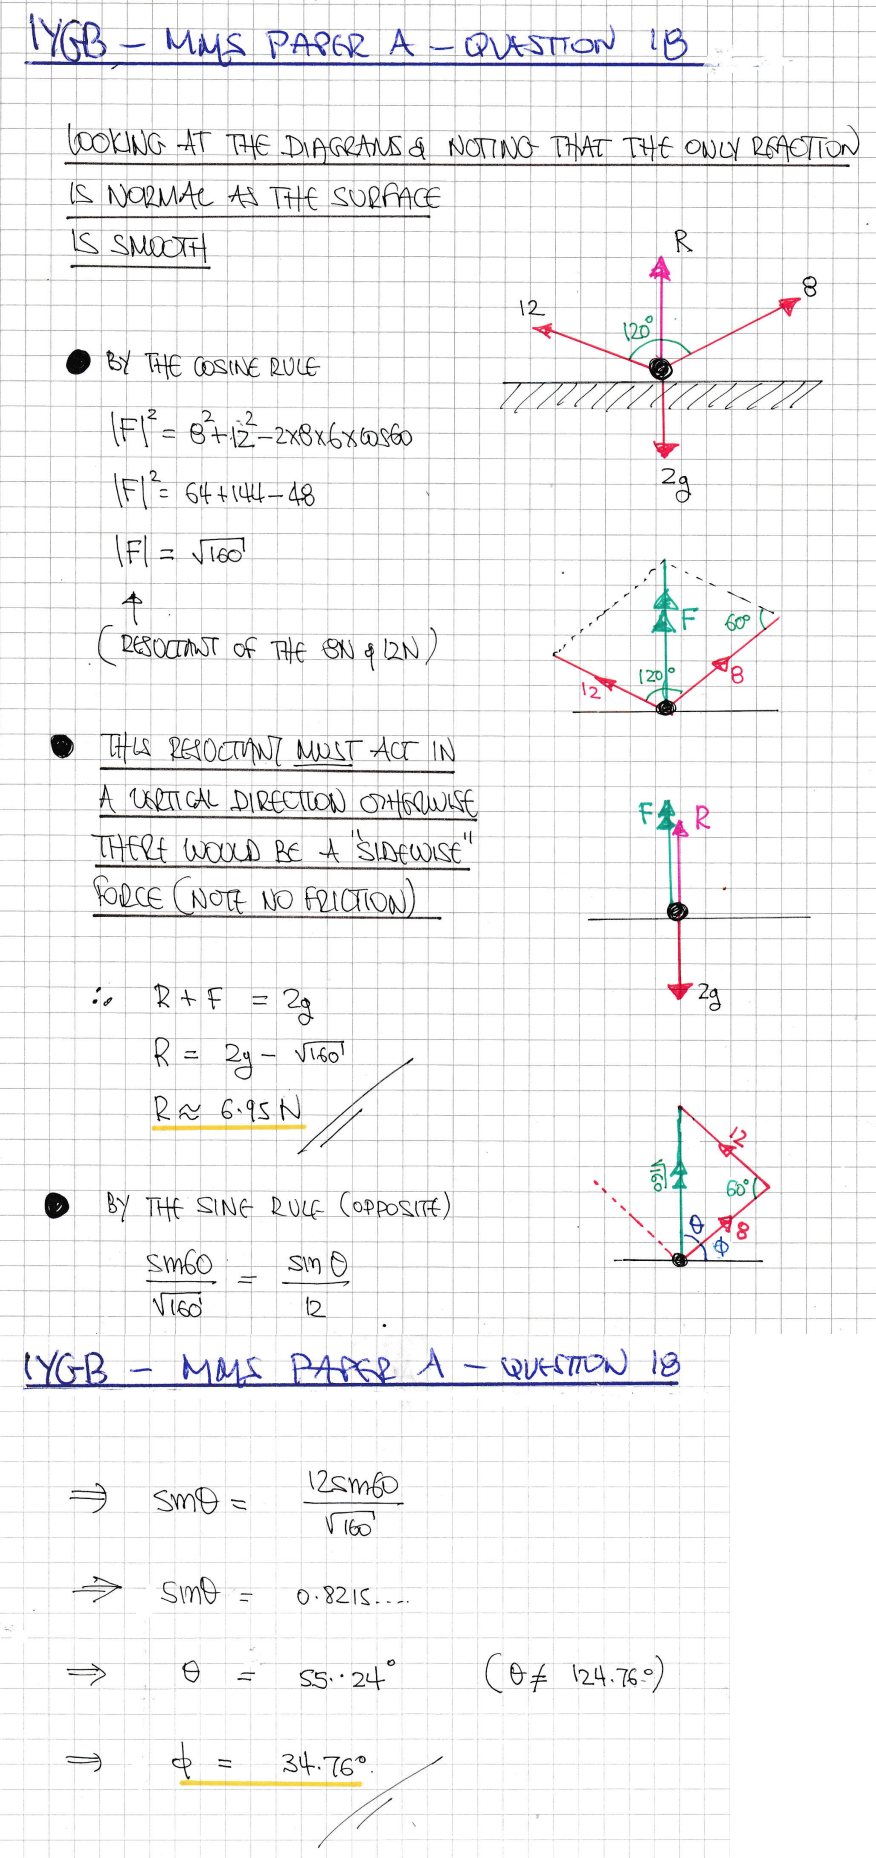 IYGB – MMS PAPER A – QUESTION 18
LOOKING AT THE DIAGRAMS & NOTING THAT THE ONLY REACTION
IS NORMAL AS THE SURFACE
IS SMOOTH
R
12
8
120°
2g
● BY THE COSINE RULE
|F|² = 8² + 12² – 2×8×6×cos60
|F|² = 64 + 144 – 48
|F| = √160
↑
(RESULTANT OF THE 8N & 12N)
F
60°
120°
12
8
● THIS RESULTANT MUST ACT IN
A VERTICAL DIRECTION OTHERWISE
THERE WOULD BE A "SIDEWISE"
FORCE (NOTE NO FRICTION)
F
R
2g
∴ R + F = 2g
R = 2g – √160
R ≈ 6.95 N
● BY THE SINE RULE (OPPOSITE)
sin60/√160 = sinθ/12
12
√160
60°
θ
8
φ
IYGB – MMS PAPER A – QUESTION 18
⇒ sinθ = 12sin60/√160
⇒ sinθ = 0.8215....
⇒ θ = 55..24° (θ ≠ 124.76°)
⇒ φ = 34.76°.